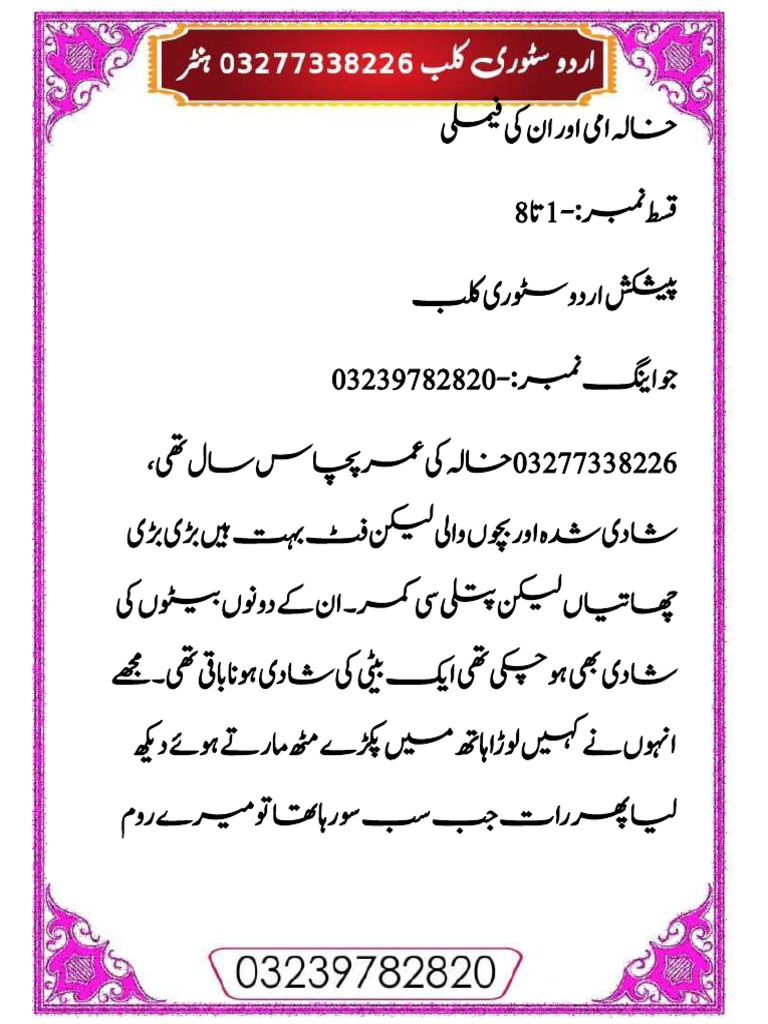 اردو سٹوری کلب 03277338226 ہنٹر
خالہ امی اور ان کی فیملی
قسط نمبر:-1 تا 8
پیشکش اردو سٹوری کلب
جواینگ نمبر:-03239782820
03277338226خالہ کی عمر پچاس سال تھی،
شادی شدہ اور بچوں والی لیکن فٹ بہت ہیں بڑی بڑی
چھاتیاں لیکن پتلی سی کمر۔ ان کے دونوں بیٹوں کی
شادی بھی ہو چکی تھی ایک بیٹی کی شادی ہونا باقی تھی۔ مجھے
انہوں نے کہیں لوڑا ہاتھ میں پکڑے مٹھ مارتے ہوئے دیکھ
لیا پھر رات جب سب سو رہا تھا تو میرے روم
03239782820